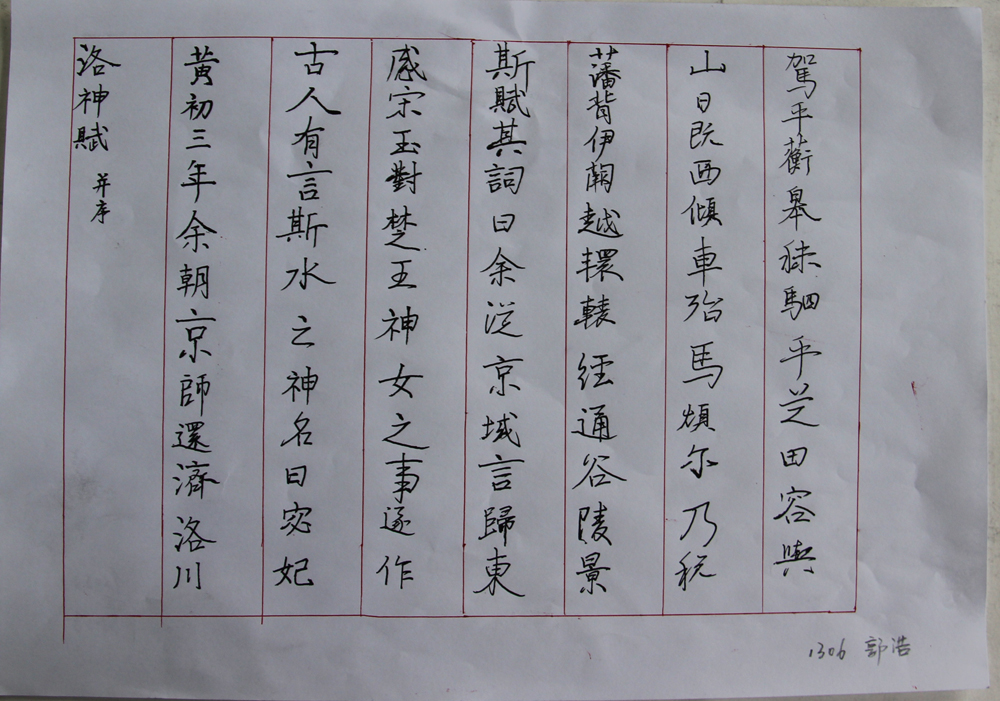 洛神賦 并序
黃初三年余朝京師還濟洛川
古人有言斯水之神名曰宓妃
感宋玉對楚王神女之事遂作
斯賦其詞曰余從京域言歸東
藩背伊闕越轘轅經通谷陵景
山日既西傾車殆馬煩尔乃税
駕乎蘅皋秣駟乎芝田容與
1306 浩